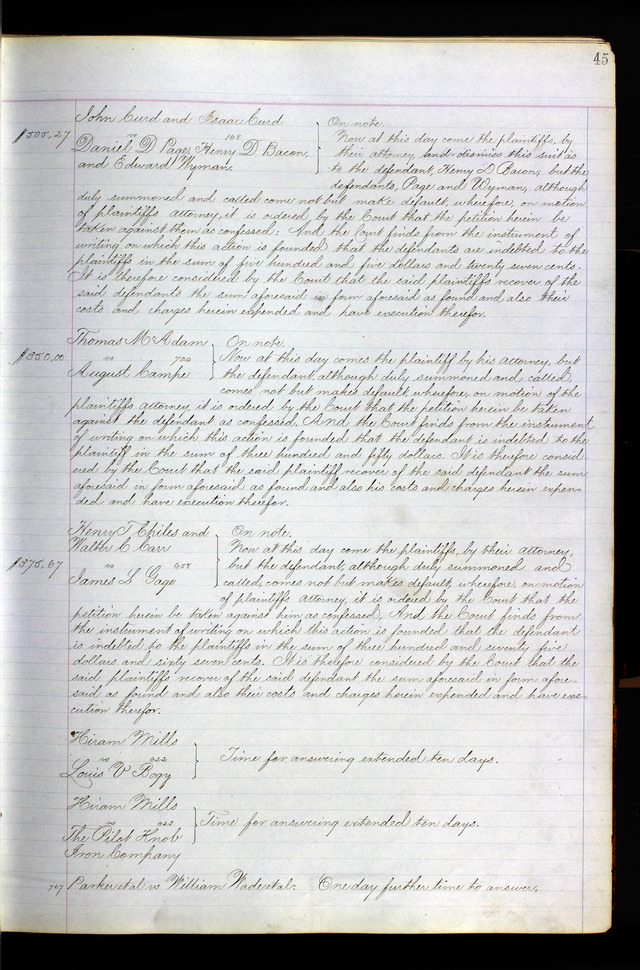 45
John Curd and Isaac Curd
$505,27 vs 168
Daniel D Page, Henry D Bacon,
and Edward Wyman.
On note.
Now at this day come the plaintiffs, by
their attorney and dismiss this suit as
to the defendant, Henry D Bacon, but the
defendants, Page and Wyman, although
duly summoned and called come not but make default, wherefore, on motion
of plaintiffs attorney, it is ordered, by the Court that the petition herein be
taken against them as confessed: And the Court finds from the instrument of
writing on which this action is founded that the defendants are indebted to the
plaintiffs in the sum of five hundred and five dollars and twenty seven cents.
It is therefore considered by the Court that the said plaintiffs recover of the
said defendants the sum aforesaid in form aforesaid as found and also their
costs and charges herein expended and have execution therefor.
Thomas McAdam
$350,00 vs 704
August Campe
On note.
Now at this day comes the plaintiff by his attorney, but
the defendant, although duly summoned and called,
comes not but makes default, wherefore, on motion of the
plaintiffs attorney it is ordered by the Court that the petition herein be taken
against the defendant as confessed. And the Court finds from the instrument
of writing on which this action is founded that the defendant is indebted to the
plaintiff in the sum of three hundred and fifty dollars. It is therefore consid
ered by the Court that the said plaintiff recover of the said defendant the sum
aforesaid in form aforesaid as found and also his costs and charges herein expen-
ded and have execution therefor.
Henry T Chiles and
Walter C Carr
$375,67 vs 608
James S Gage
On note.
Now at this day come the plaintiffs, by their attorney,
but the defendant, although duly summoned and
called, comes not but makes default, wherefore, on motion
of plaintiffs attorney, it is ordered by the Court that the
petition herein be taken against him as confessed, And the Court finds from
the instrument of writing on which this action is founded that the defendant
is indebted to the plaintiffs in the sum of three hundred and seventy five
dollars and sixty seven cents. It is therefore considered by the Court that the
said plaintiffs recover of the said defendant the sum aforesaid in form afore-
said as found and also their costs and charges herein expended and have exe-
cution therefor.
Hiram Mills
vs 622
Louis V Bogy
Time for answering extended ten days.
Hiram Mills
vs 623
The Pilot Knob
Iron Company
Time for answering extended ten days.
767 Parker et al vs William Wade et al: One day further time to answer.